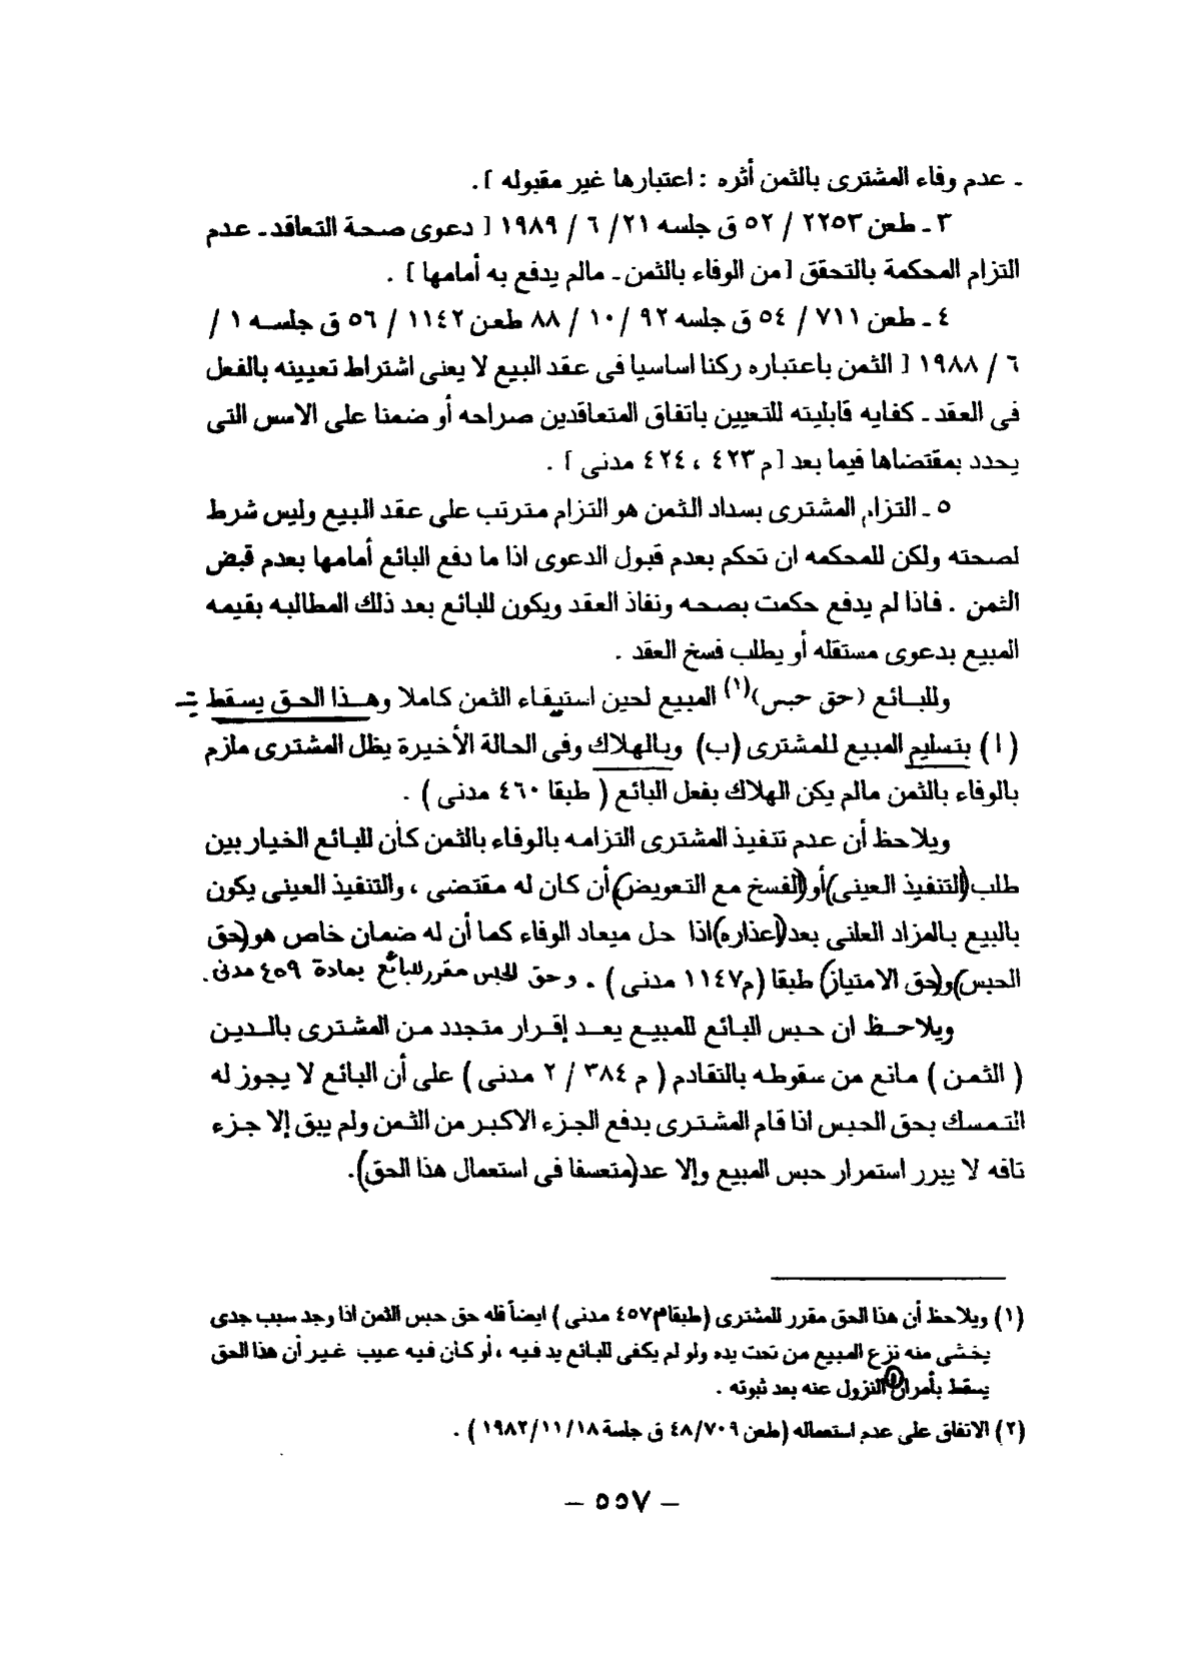 ـ عدم وفاء المشترى بالثمن أثره : اعتبارها غير مقبوله ] .
٣ ـ طعن ٢٢٥٣ / ٥٢ ق جلسه ٢١ / ٦ / ١٩٨٩ [ دعوى صحة التعاقد ـ عدم
التزام المحكمة بالتحقق [ من الوفاء بالثمن ـ مالم يدفع به أمامها ] .
٤ ـ طعن ٧١١ / ٥٤ ق جلسه ٩٢ / ١٠ / ٨٨ طعن ١١٤٢ / ٥٦ ق جلسه ١ /
٦ / ١٩٨٨ [ الثمن باعتباره ركنا اساسيا فى عقد البيع لا يعنى اشتراط تعيينه بالفعل
فى العقد ـ كفايه قابليته للتعيين باتفاق المتعاقدين صراحه أو ضمنا على الاسس التى
يحدد بمقتضاها فيما بعد [ م ٤٢٣ ، ٤٢٤ مدنى ] .
٥ ـ التزام المشترى بسداد الثمن هو التزام مترتب على عقد البيع وليس شرط
لصحته ولكن للمحكمه ان تحكم بعدم قبول الدعوى اذا ما دفع البائع أمامها بعدم قبض
الثمن . فاذا لم يدفع حكمت بصحه ونفاذ العقد ويكون للبائع بعد ذلك المطالبه بقيمه
المبيع بدعوى مستقله أو يطلب فسخ العقد .
وللبائع (حق حبس)(١) المبيع لحين استيفاء الثمن كاملا وهذا الحق يسقط :ـ
(ا) بتسليم المبيع للمشترى (ب) وبالهلاك وفى الحالة الأخيرة يظل المشترى ملزم
بالوفاء بالثمن مالم يكن الهلاك بفعل البائع ( طبقا ٤٦٠ مدنى ) .
ويلاحظ أن عدم تنفيذ المشترى التزامه بالوفاء بالثمن كان للبائع الخيار بين
طلب (التنفيذ العينى) أو (الفسخ مع التعويض) أن كان له مقتضى ، والتنفيذ العينى يكون
بالبيع بالمزاد العلنى بعد (اعذاره) اذا حل ميعاد الوفاء كما أن له ضمان خاص هو (حق
الحبس) و (حق الامتياز) طبقا (م ١١٤٧ مدنى ) . وحق الحبس مقرر للبائع بمادة ٤٥٩ مدنى .
ويلاحظ ان حبس البائع للمبيع يعد إقرار متجدد من المشترى بالدين
( الثمن ) مانع من سقوطه بالتقادم ( م ٣٨٤ / ٢ مدنى ) على أن البائع لا يجوز له
التمسك بحق الحبس اذا قام المشترى بدفع الجزء الاكبر من الثمن ولم يبق إلا جزء
تافه لا يبرر استمرار حبس المبيع وإلا عد (متعسفا فى استعمال هذا الحق) .
(١) ويلاحظ أن هذا الحق مقرر للمشترى (طبقا م ٤٥٧ مدنى ) ايضاً فله حق حبس الثمن اذا وجد سبب جدى
يخشى منه نزع المبيع من تحت يده ولو لم يكفى للبائع يد فيه ، أو كان فيه عيب غير أن هذا الحق
يسقط بأمران النزول عنه بعد ثبوته .
(٢) الاتفاق على عدم استعماله (طعن ٤٨/٧٠٩ ق جلسة ١٩٨٢/١١/١٨ ) .
– ٥٥٧ –